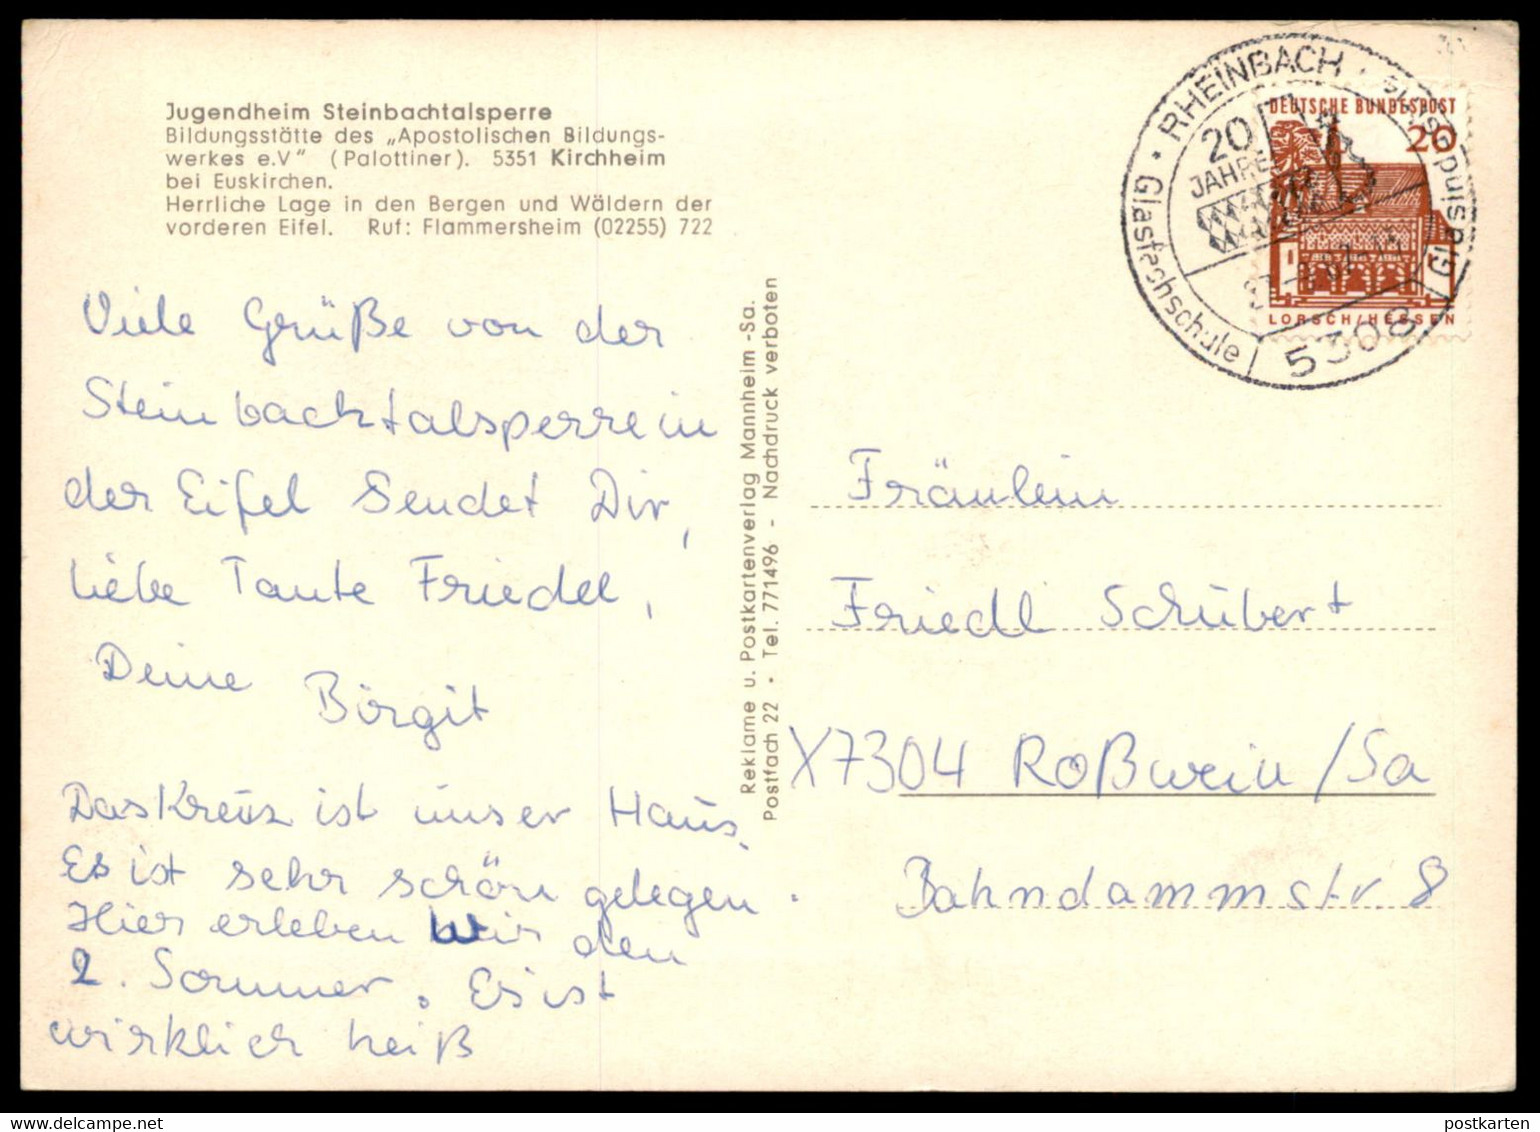 Jugendheim Steinbachtalsperre
Bildungsstätte des „Apostolischen Bildungs-
werkes e.V" (Palottiner). 5351 Kirchheim
bei Euskirchen.
Herrliche Lage in den Bergen und Wäldern der
vorderen Eifel. Ruf: Flammersheim (02255) 722
Viele Grüße von der
Steinbachtalsperre in
der Eifel sendet Dir,
liebe Tante Friedel,
Deine Birgit
Das Kreuz ist unser Haus.
Es ist sehr schön gelegen.
Hier erleben wir den
2. Sommer. Es ist
wirklich heiß
Reklame u. Postkartenverlag Mannheim -Sa.
Postfach 22 • Tel. 771496 - Nachdruck verboten
RHEINBACH
Glasfachschule
20
JAHRE
5308
DEUTSCHE BUNDESPOST
20
LORSCH/HESSEN
Fräulein
Friedl Schubert
X7304 Roßwein/Sa
Bahndammstr. 8
postkarten